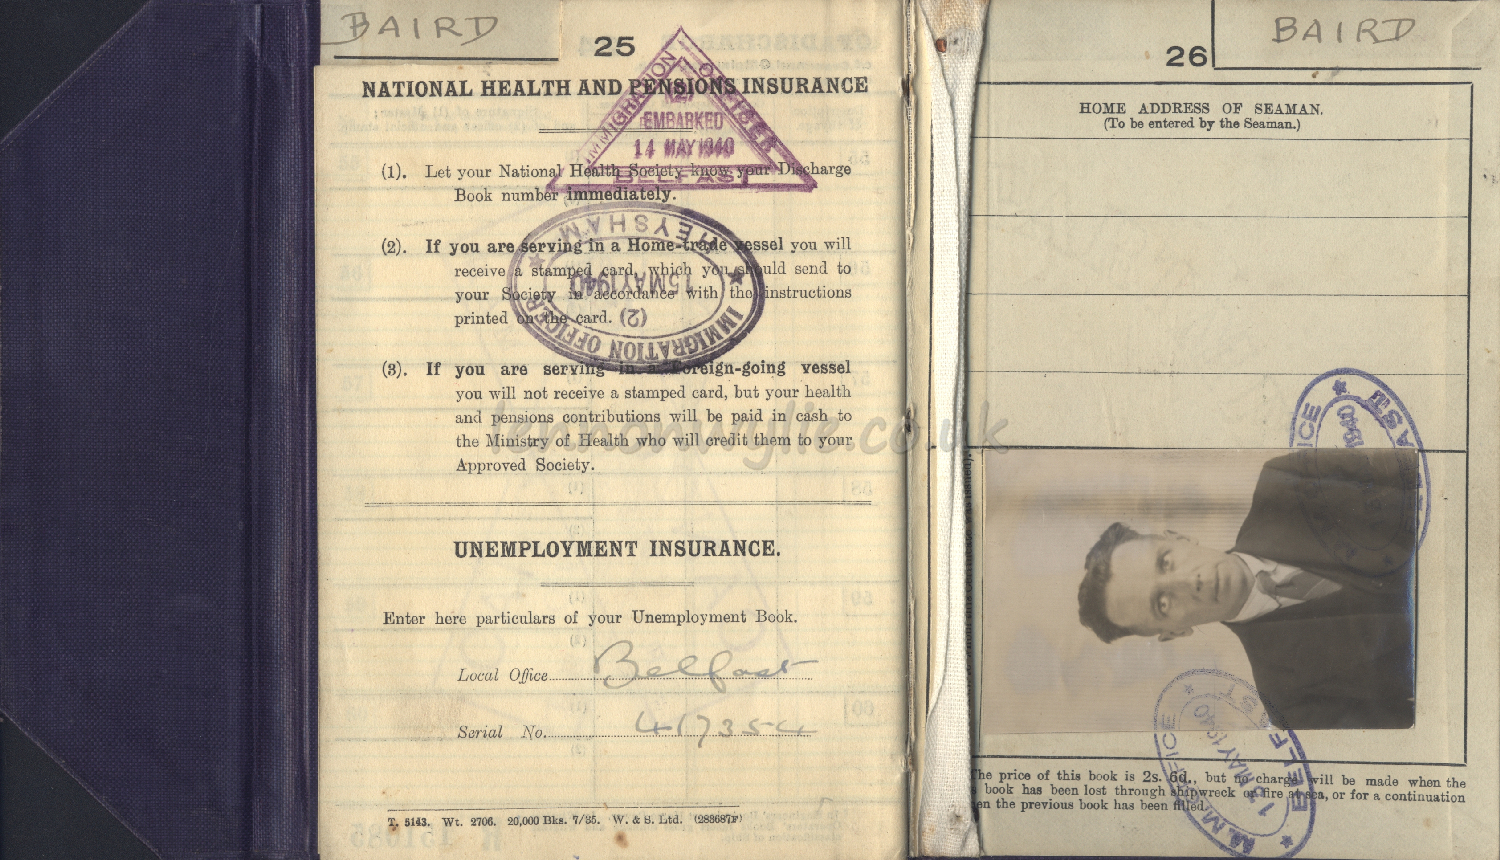 BAIRD
25
NATIONAL HEALTH AND PENSIONS INSURANCE
IMMIGRATION OFFICER
EMBARKED
14 MAY 1940
BELFAST
(1). Let your National Health Society know your Discharge
Book number immediately.
(2). If you are serving in a Home-trade vessel you will
receive a stamped card, which you should send to
your Society in accordance with the instructions
printed on the card.
HEYSHAM
15 MAY 1940
(2)
IMMIGRATION OFFICER
(3). If you are serving in a Foreign-going vessel
you will not receive a stamped card, but your health
and pensions contributions will be paid in cash to
the Ministry of Health who will credit them to your
Approved Society.
UNEMPLOYMENT INSURANCE.
Enter here particulars of your Unemployment Book.
Local Office Belfast
Serial No. 417354
T. 5143. Wt. 2706. 20,000 Bks. 7/35. W. & S. Ltd. (288687F)
lennonwylie.co.uk
BAIRD
26
HOME ADDRESS OF SEAMAN.
(To be entered by the Seaman.)
1940
M.M. OFFICE
13 MAY 1940
BELFAST
The price of this book is 2s. 6d., but no charge will be made when the
book has been lost through shipwreck or fire at sea, or for a continuation
en the previous book has been filled.